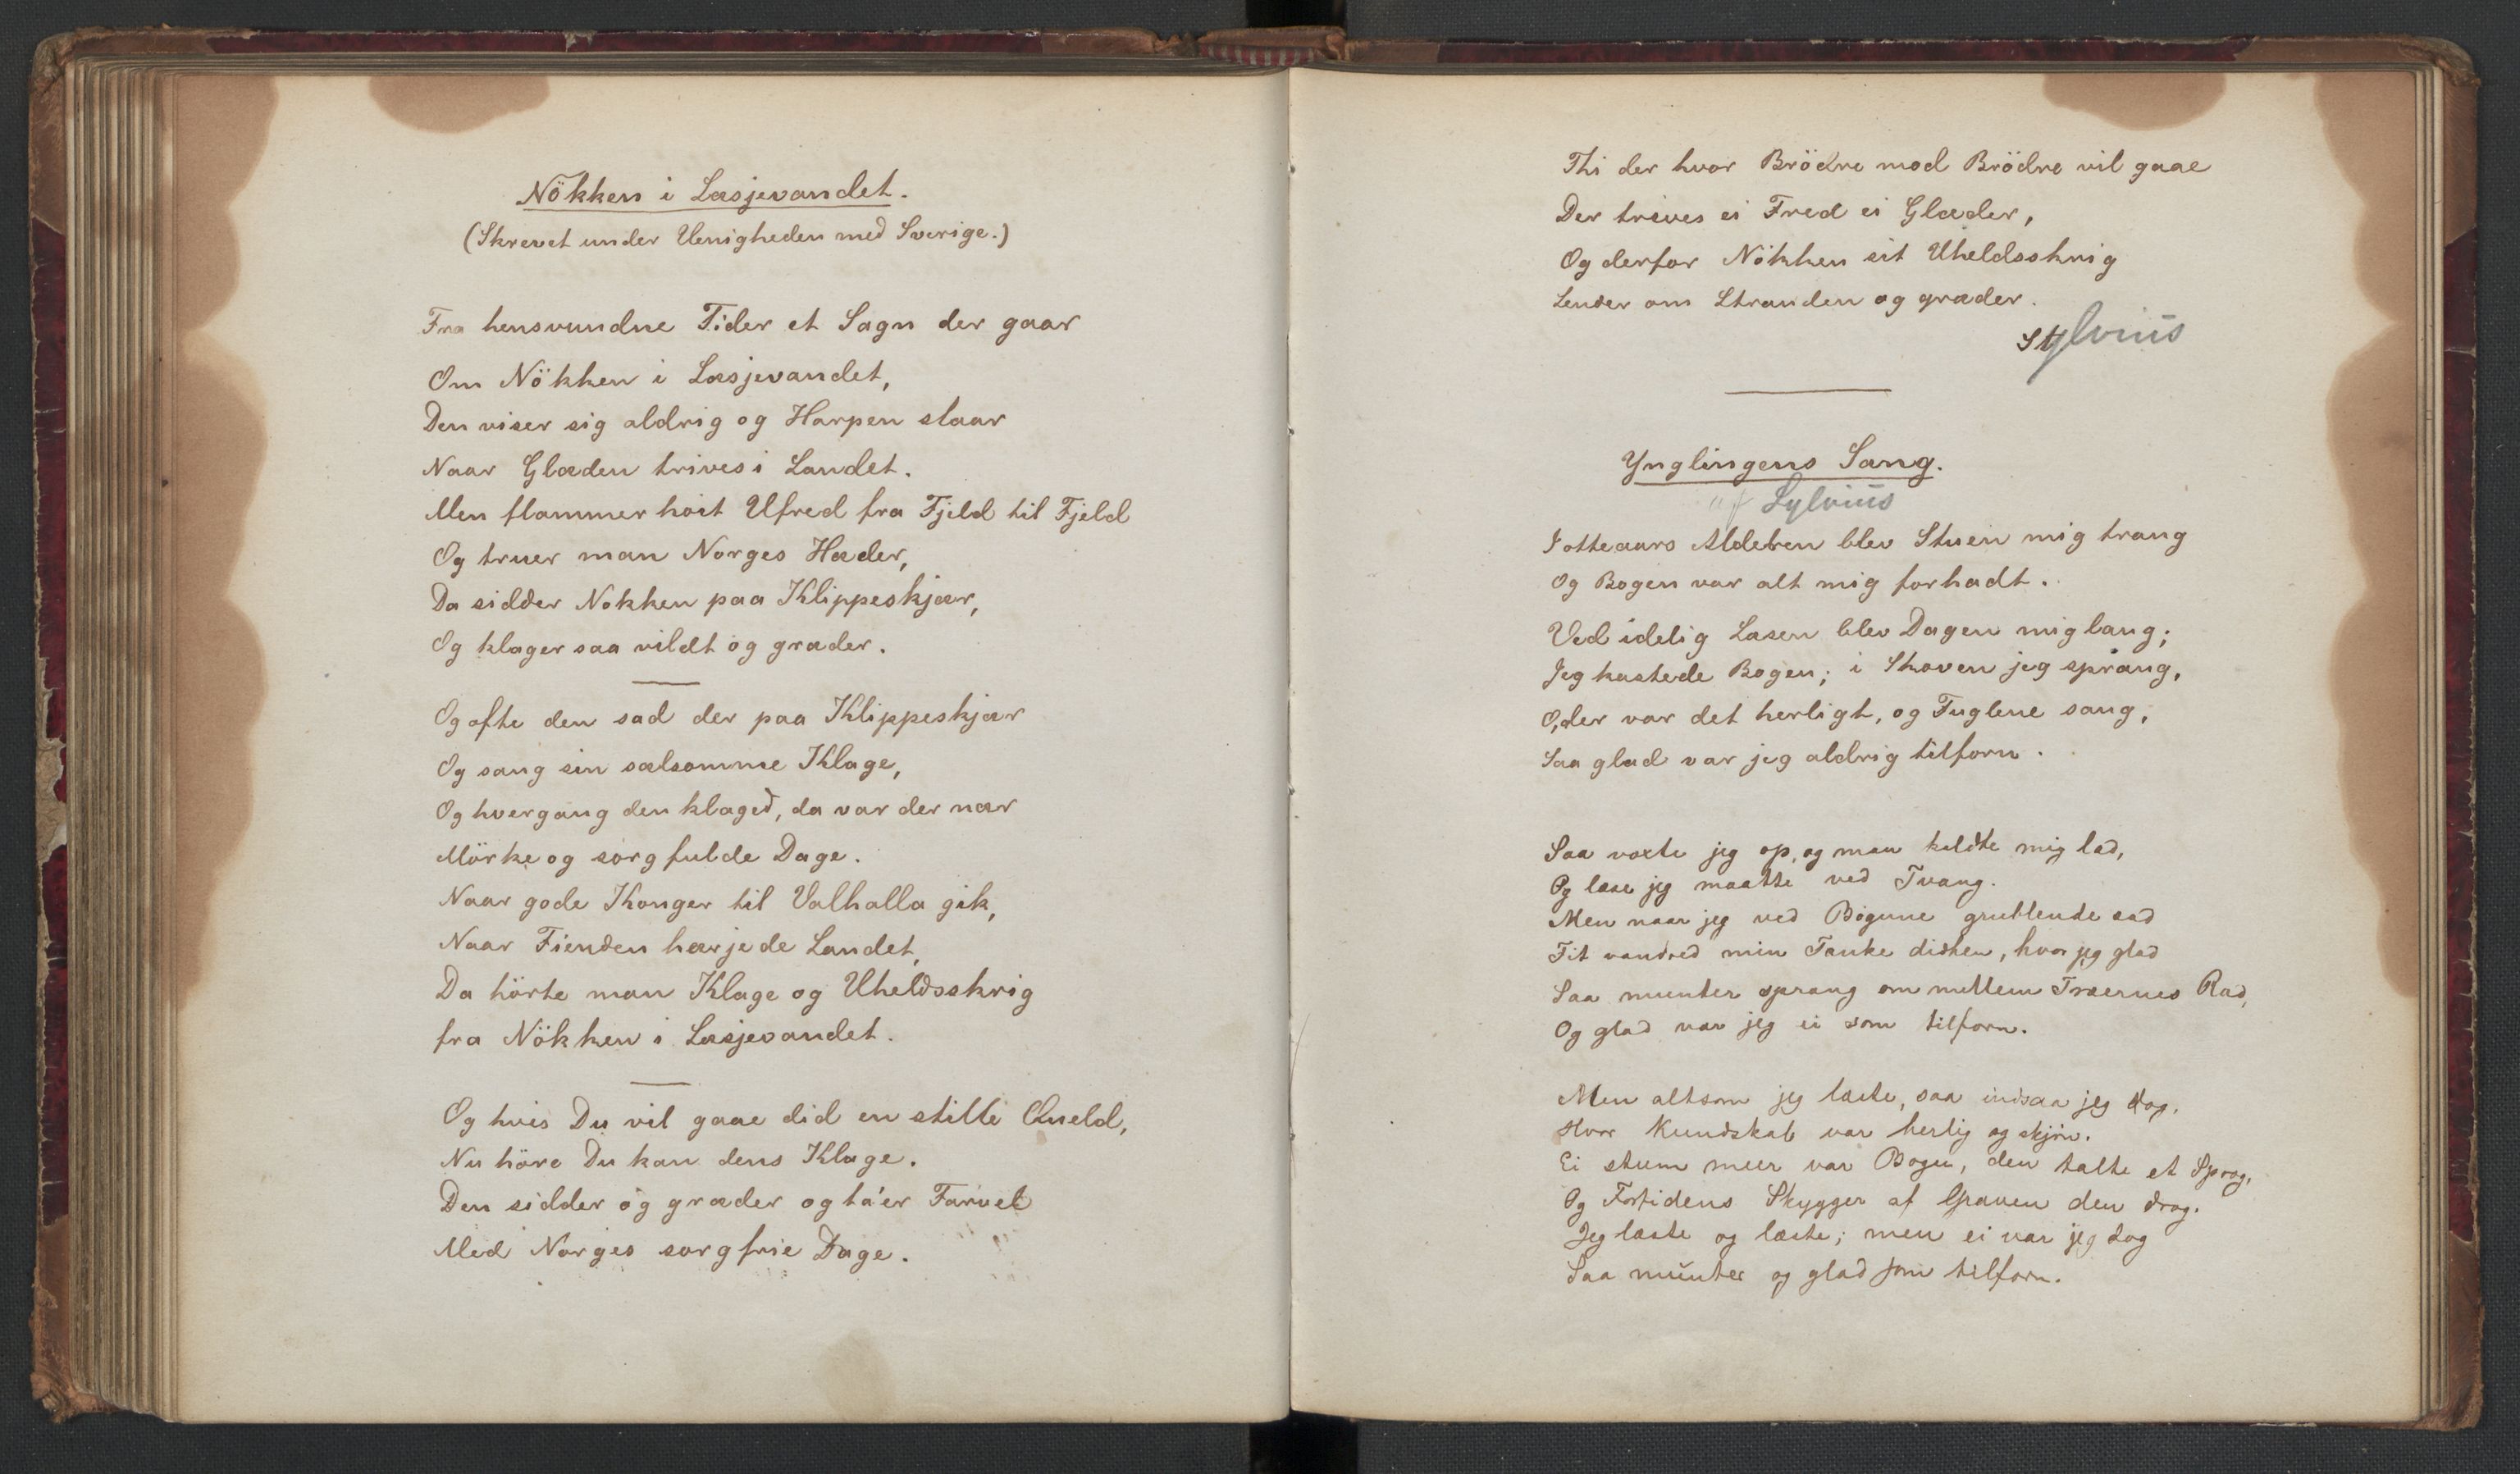 Nökken i Læsjevandet.
(Skrevet under Uenigheden med Sverige.)
Fra hensvundne Tider et Sagn der gaar
Om Nökken i Læsjevandet,
Den viser sig aldrig og Harpen slaar
Naar Glæden trives i Landet.
Men flammer høit Ufred fra Fjeld til Fjeld
Og truer man Norges Hæder,
Da sidder Nøkken paa Klippeskjær,
Og klager saa vildt og græder.
Og ofte den sad der paa Klippeskjær
Og sang sin sælsomme Klage,
Og hvergang den klaged, da var der nær
Mörke og sorgfulde Dage.
Naar gode Konger til Valhalla gik,
Naar Fienden hærjede Landet,
Da hörte man Klage og Uheldsskrig
fra Nökken i Læsjevandet.
Og hvis Du vil gaae did en stille Qveld,
Nu höre Du kan dens Klage.
Den sidder og græder og ta'er Farvel
Med Norges sorgfrie Dage.
Thi der hvor Brödre mod Brödre vil gaae
Der trives ei Fred ei Glæder,
Og derfor Nökken sit Uheldsskrig
Sender om Stranden og græder.
Sylvius
Ynglingens Sang.
af Sylvius
I otteaars Alderen blev Stuen mig trang
Og Bogen var alt mig forhadt.
Ved idelig Læsen blev Dagen mig lang;
Jeg kastede Bogen; i Skoven jeg sprang,
O, der var det herligt, og Fuglene sang,
Saa glad var jeg aldrig tilforn.
Saa voxte jeg op, og man kaldte mig lad,
Og læse jeg maatte ved Tvang.
Men naar jeg ved Bøgerne grublende sad
Tit vandred min Tanke didhen, hvor jeg glad
Saa munter sprang om mellem Træernes Rad,
Og glad var jeg ei som tilforn.
Men altsom jeg læste, saa indsaa jeg dog,
Hvor Kundskab var herlig og skjøn.
Ei stum meer var Bogen, den talte et Sprog,
Og Fortidens Skygger af Graven den drog.
Jeg læste og læste; men ei var jeg dog
Saa munter og glad som tilforn.